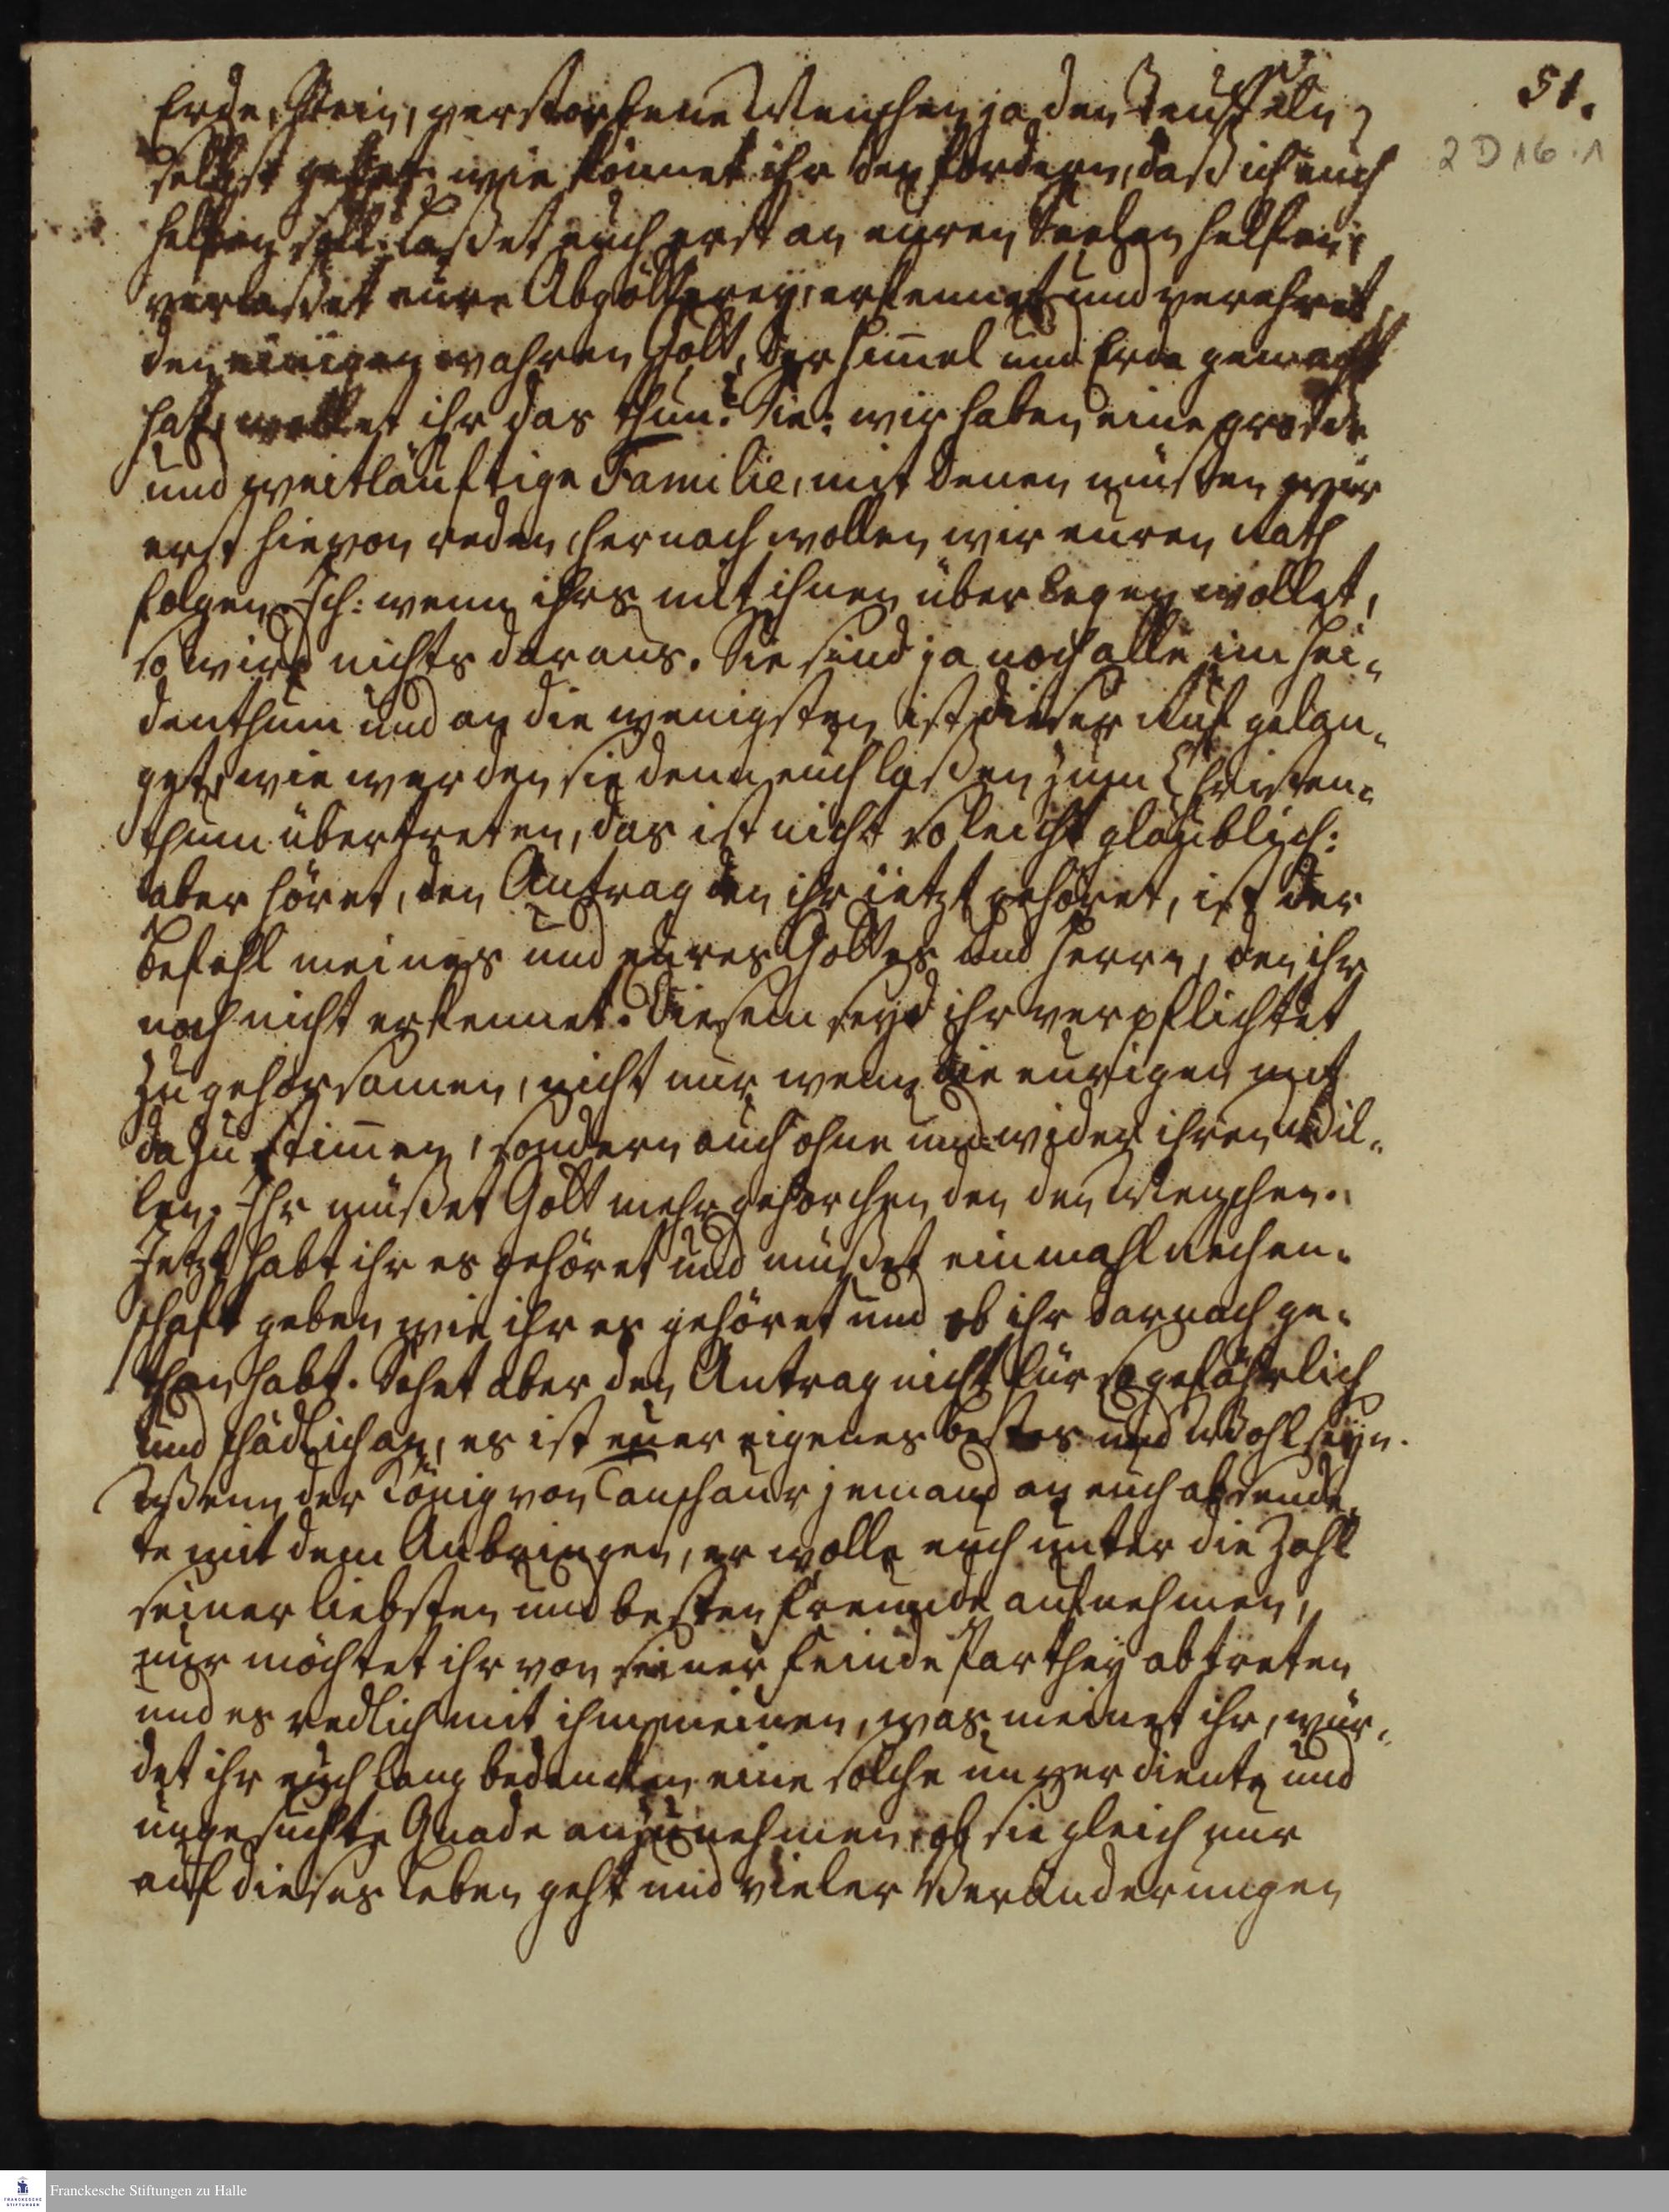 51.
2 D 16.1
Erde, Stein, verstorbene Menschen ja den Teuffeln
selbst gebet. wie könnet ihr den fordern, daß ich euch
helfen soll: laßet euch erst an euren Seelen helfen,
verlaßet eure Abgötterey, erkennet und verehret
den einigen wahren Gott, der Himel und Erde gemacht
hat, wollet ihr das thun? Sie: wir haben eine grosse
und weitläuftige Familie, mit denen müssen wir
erst hievon reden, hernach wollen wir euren Rath
folgen. Ich: wenn ihrs mit ihnen überlegen wollet,
so wird nichts daraus. Sie sind ja noch alle im Hei-
denthum und an die wenigsten ist dieser Ruf gelan-
get, wie werden sie denn euch laßen zum Christen-
thum übertreten, das ist nicht so leicht gläublich:
aber höret, den Antrag den ihr ietzt gehöret, ist der
Befehl meines und eures Gottes und Herrn, den ihr
noch nicht erkennet. Diesem seyd ihr verpflichtet
zu gehorsamen, nicht nur wenn die eurigen mit
dazu stimen, sondern auch ohne und wider ihren Wil-
len. Ihr müßet Gott mehr gehorchen den den Menschen.
Jetzt habt ihr es gehöret und müßet einmahl rechen-
schaft geben wie ihr es gehöret und ob ihr darnach ge-
than habt. Sehet aber den Antrag nicht für so gefährlich
und schädlich an, es ist euer eigenes bestes und Wohlseyn.
Wenn der König von Tanschaur jemand an euch absende-
te mit dem Anbringen, er wolle euch unter die Zahl
seiner liebsten und besten Freunde aufnehmen,
nur möchtet ihr von seiner Feinde Parthey abtreten
und es redlich mit ihm meinen, was meinet ihr, wür-
det ihr euch lang bedencken eine solche unverdiente und
ungesuchte Gnade anzunehmen, ob sie gleich nur
auf dieses Leben geht und vieler Veränderungen
Franckesche Stiftungen zu Halle
FRANCKESCHE
STIFTUNGEN